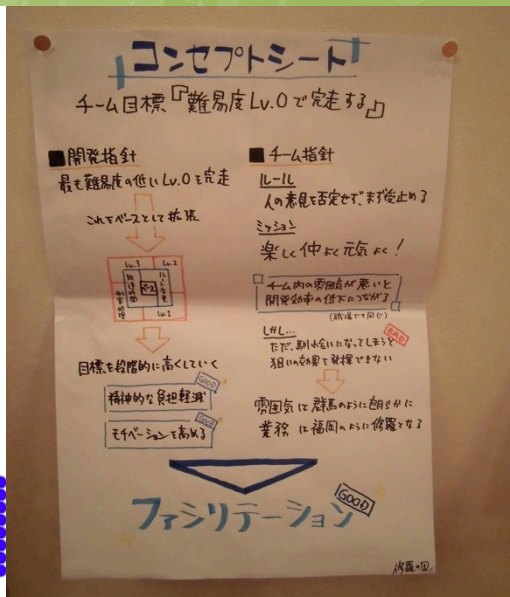 コンセプトシート
チーム目標『難易度Lv.0で完走する』
■開発指針
最も難易度の低いLv.0を完走
これをベースとして拡張
Lv.3 Lv.2
ベース
Lv.1
目標を段階的に高くしていく
精神的な負担軽減
GOOD
モチベーションを高める
GOOD
■チーム指針
ルール
人の意見を否定せず、まず受止める
ミッション
楽しく仲よく元気よく!
チーム内の雰囲気が悪いと
開発効率の低下につながる
(職場でも同じ)
しかし…
BAD
ただ、馴れ合いになってしまうと
狙いの効果を発揮できない
雰囲気は群馬のように朗らかに
業務は福岡のように修羅となる
ファシリテーション
GOOD
修羅の国